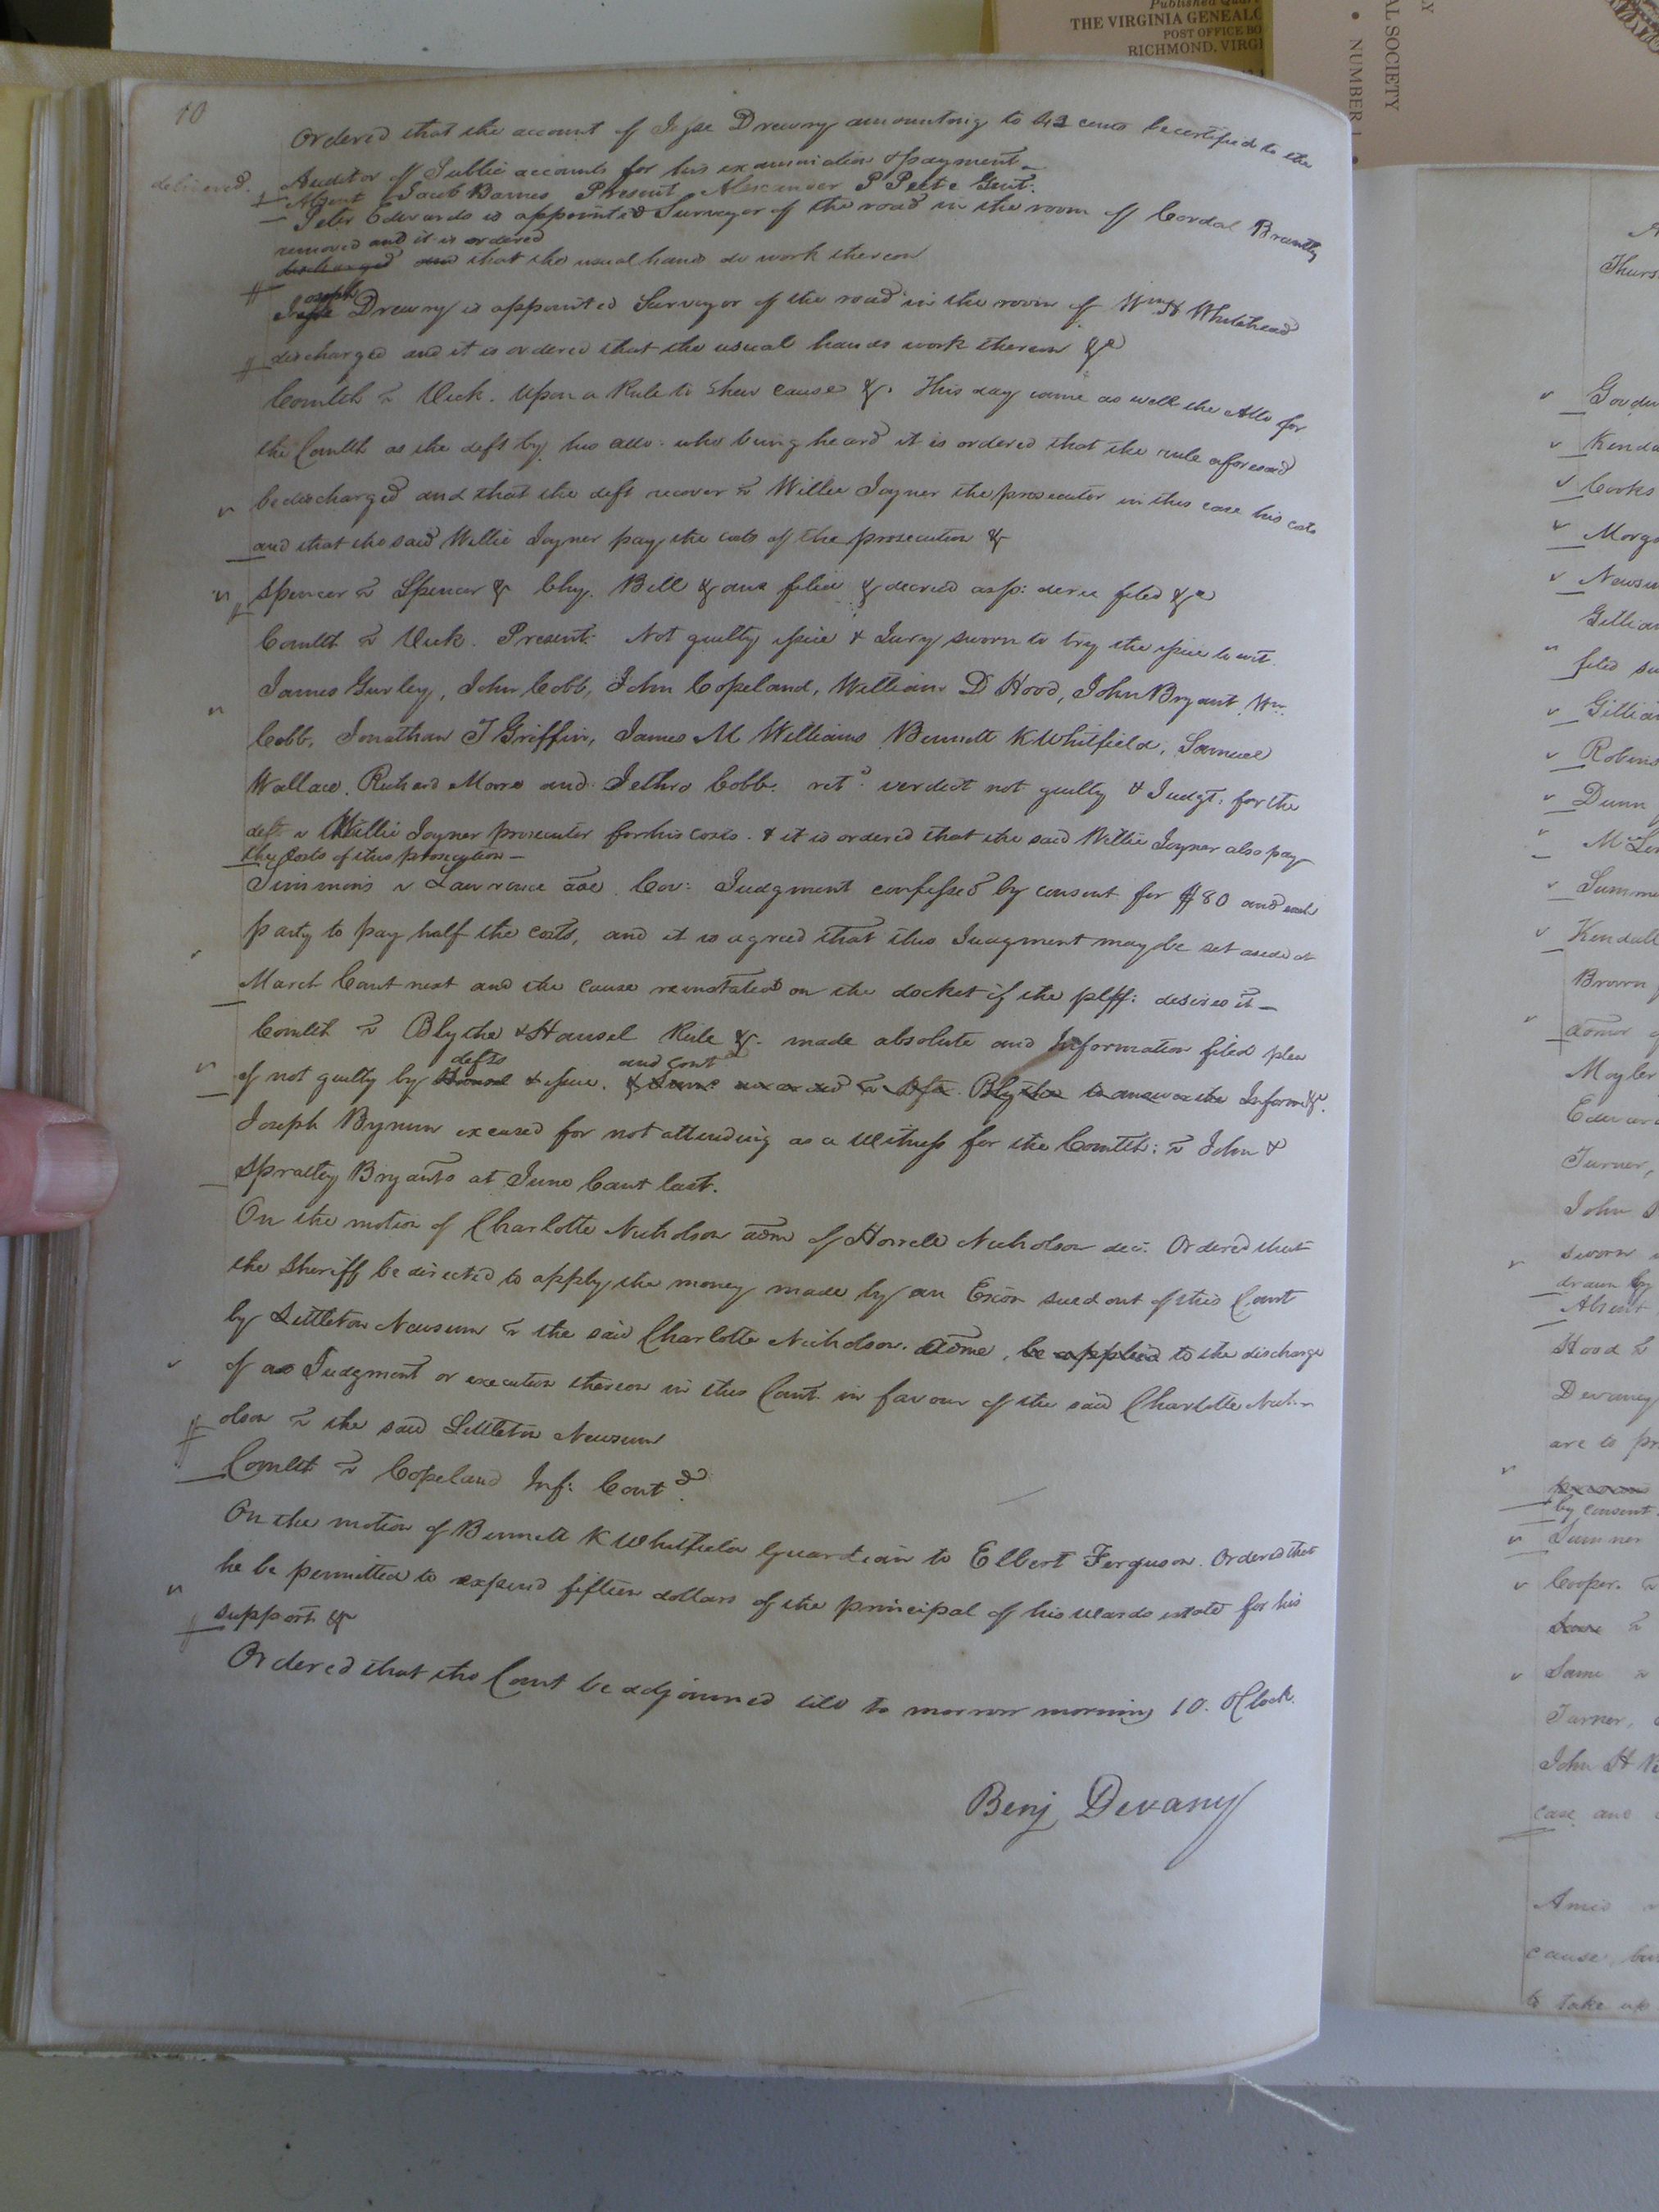 Published Quar
THE VIRGINIA GENEALO
POST OFFICE BO
RICHMOND, VIRGI
AL SOCIETY
NUMBER 1
10
Ordered that the account of Jesse Drewry amounting to 42 cents be certified to the
delivered. Auditor of Public accounts for his examination & payment
Absent Jacob Barnes Present Alexander P Peete Gent.
Peter Edwards is appointed Surveyor of the road in the room of Cordal Brantley
removed and it is ordered
discharged and that the usual hands do work thereon
oseph
Jesse Drewry is appointed Surveyor of the road in the room of Wm H Whitehead
discharged and it is ordered that the usual hands work thereon &c
Comlth v Vick. Upon a Rule to Shew cause &. This day came as well the Atto for
the Comlth as the deft by his atto: who being heard it is ordered that the rule aforesaid
be discharged and that the deft recover v Willie Joyner the prosecutor in this case his costs
and that the said Willie Joyner pay the costs of the prosecution &
Spencer v Spencer & Chy. Bill & ans filed & decred as p: decre filed &c
Comlth v Vick. Present. Not guilty issue & Jury sworn to try the issue to wit.
James Gurley, John Cobb, John Copeland, William D Hood, John Bryant Wm.
Cobb, Jonathan T Griffin, James M Williams Bennett K Whitfield, Samuel
Wallace, Richard Morris and Jethro Cobb. retd verdict not guilty & Judgt: for the
deft v Willie Joyner prosecutor for his costs. & it is ordered that the said Willie Joyner also pay
the Costs of this prosecution —
Simmons v Lawrence ads Cov: Judgment confessed by consent for $80 and each
party to pay half the costs, and it is agreed that this Judgment may be set aside at
March Court next and the cause reinstated on the docket if the plff: desires it —
Comlth v Blythe & Hansel Rule &. made absolute and Information filed plea
defts and contd
of not guilty by Hansel & issue. & Sums awarded v Blythe to answer the Inform &c.
Joseph Bynum excused for not attending as a Witness for the Comlth: v John &
Spratley Bryants at June Court last.
On the motion of Charlotte Nicholson adm of Howell Nicholson decd. Ordered that
the Sheriff be directed to apply the money made by an Exion sued out of this Court
by Littleton Newsum v the said Charlotte Nicholson. admx, be applied to the discharge
of a Judgment or execution thereon in this Court in favour of the said Charlotte Nich-
olson v the said Littleton Newsum
Comlth v Copeland Inf: Contd.
On the motion of Bennett K Whitfield Guardian to Elbert Ferguson. Ordered that
he be permitted to expend fifteen dollars of the principal of his wards estate for his
support &
Ordered that the Court be adjourned till to morrow morning 10. OClock.
Benj Devany
Thurs
Kenda
Cooks
Morga
Newsu
Gillia
filed
Gillia
Robins
Dunn
Summe
Kendall
Brown
Moyler
Edwar
Turner,
John
sworn
drawn by
Absent
Hood v
Devaney
are to pr
by consent
Sumner
Cooper. v
Same v
Same v
Turner,
John H
case and
Amis
cause,
to take up